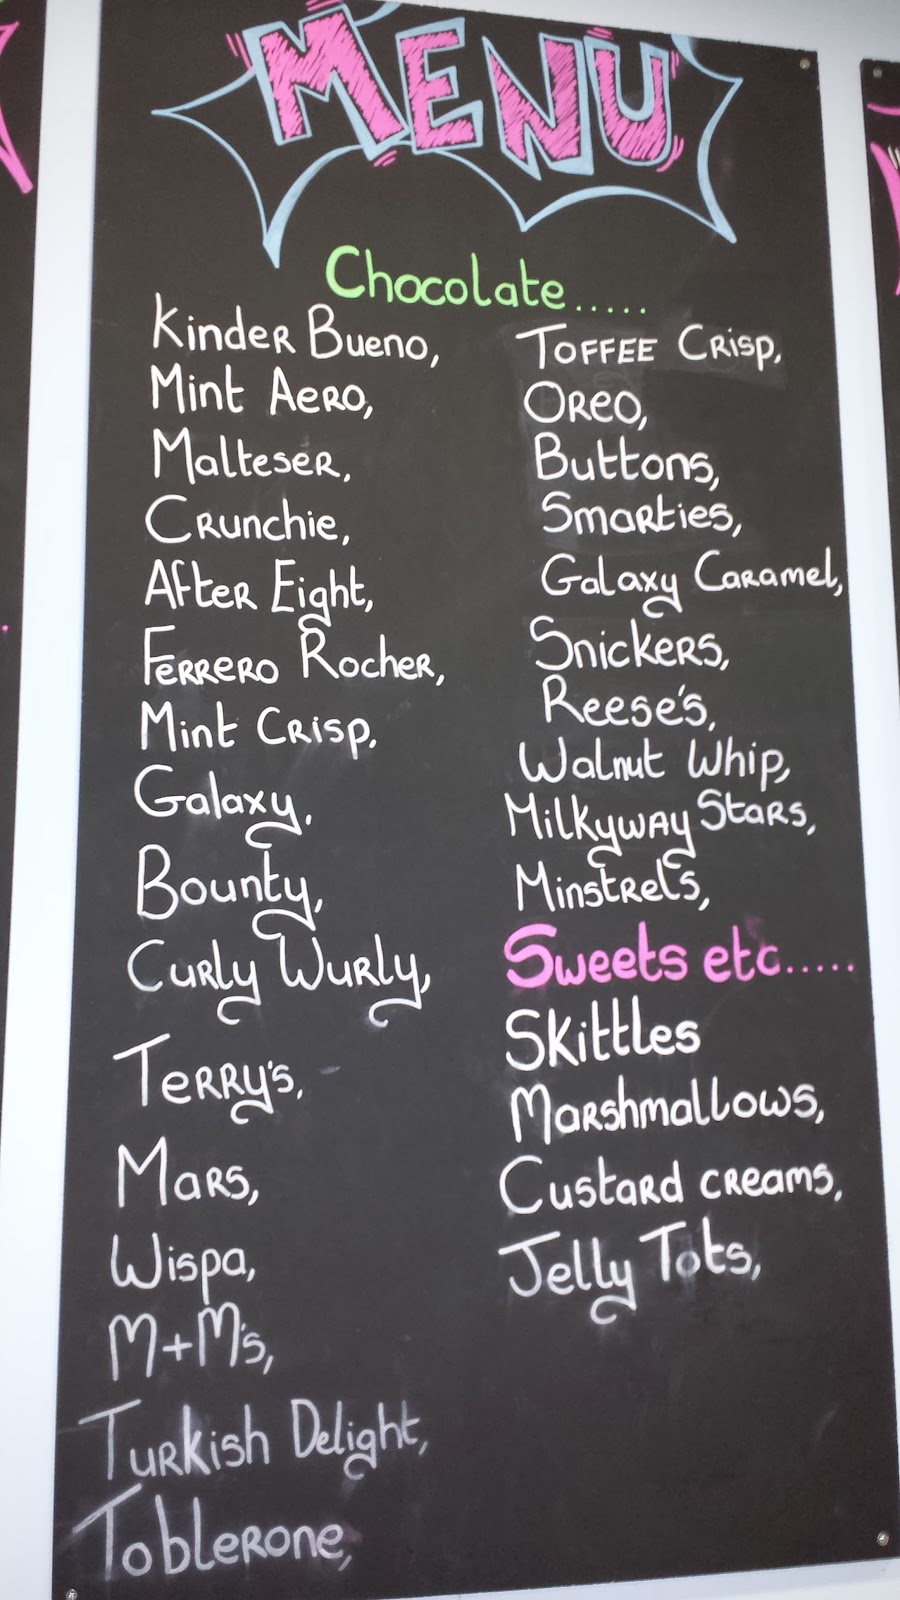 MENU
Chocolate.....
Kinder Bueno,
Mint Aero,
Malteser,
Crunchie,
After Eight,
Ferrero Rocher,
Mint Crisp,
Galaxy,
Bounty,
Curly Wurly,
Terry's,
Mars,
Wispa,
M+M's,
Turkish Delight,
Toblerone,
Toffee Crisp,
Oreo,
Buttons,
Smarties,
Galaxy Caramel,
Snickers,
Reese's,
Walnut Whip,
Milkyway Stars,
Minstrel's,
Sweets etc.....
Skittles
Marshmallows,
Custard creams,
Jelly Tots,